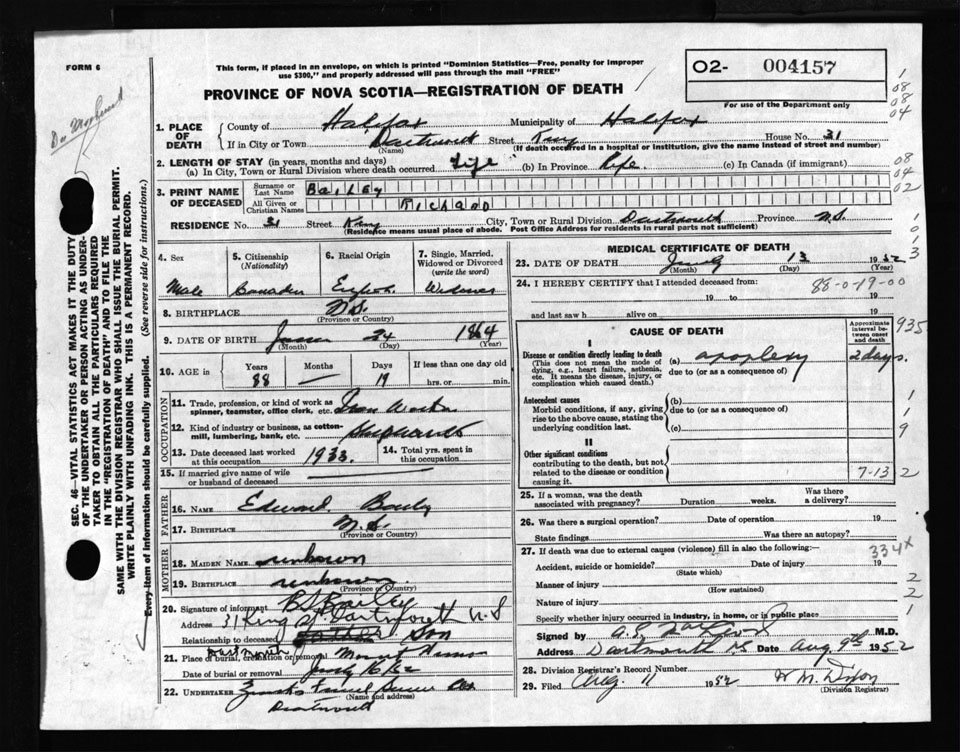 FORM 6
This form, if placed in an envelope, on which is printed "Dominion Statistics—Free, penalty for improper
use $300," and properly addressed will pass through the mail "FREE"
PROVINCE OF NOVA SCOTIA—REGISTRATION OF DEATH
O2- 004157
For use of the Department only
1. PLACE OF DEATH
County of Halifax Municipality of Halifax
If in City or Town Dartmouth Street King House No. 31
(Name) (If death occurred in a hospital or institution, give the name instead of street and number)
2. LENGTH OF STAY (in years, months and days)
(a) In City, Town or Rural Division where death occurred Life (b) In Province Life. (c) In Canada (if immigrant)
3. PRINT NAME OF DECEASED
Surname or Last Name Bailey
All Given or Christian Names Richard
RESIDENCE No. 31 Street King City, Town or Rural Division Dartmouth Province N.S.
(Residence means usual place of abode. Post Office Address for residents in rural parts not sufficient)
4. Sex Male
5. Citizenship (Nationality)
6. Racial Origin English
7. Single, Married, Widowed or Divorced (write the word) Widower
8. BIRTHPLACE N.S.
(Province or Country)
9. DATE OF BIRTH 24 1864
(Month) (Day) (Year)
10. AGE in Years 88 Months — Days 19 If less than one day old hrs. or min.
OCCUPATION
11. Trade, profession, or kind of work as spinner, teamster, office clerk, etc. Iron Worker
12. Kind of industry or business, as cotton-mill, lumbering, bank, etc.
13. Date deceased last worked at this occupation 1933.
14. Total yrs. spent in this occupation
15. If married give name of wife or husband of deceased
FATHER
16. NAME Edward
17. BIRTHPLACE N.S.
(Province or Country)
MOTHER
18. MAIDEN NAME unknown
19. BIRTHPLACE unknown
(Province or Country)
20. Signature of informant Bailey
Address 31 King St. Dartmouth N-S
Relationship to deceased Son
Dartmouth
21. Place of burial, cremation or removal
Date of burial or removal
22. UNDERTAKER
(Name and address)
Dartmouth
MEDICAL CERTIFICATE OF DEATH
23. DATE OF DEATH July 13 1952
(Month) (Day) (Year)
24. I HEREBY CERTIFY that I attended deceased from: 88-0-19-00
19 to 19
and last saw h alive on 19
CAUSE OF DEATH
Approximate interval between onset and death
I
Disease or condition directly leading to death
(This does not mean the mode of dying, e.g., heart failure, asthenia, etc. It means the disease, injury, or complication which caused death.)
(a) apoplexy 2 days.
due to (or as a consequence of)
Antecedent causes
Morbid conditions, if any, giving rise to the above cause, stating the underlying condition last.
(b)
due to (or as a consequence of)
(c)
II
Other significant conditions contributing to the death, but not related to the disease or condition causing it.
7-13 2
25. If a woman, was the death associated with pregnancy? Duration weeks. Was there a delivery?
26. Was there a surgical operation? Date of operation 19
State findings Was there an autopsy?
27. If death was due to external causes (violence) fill in also the following:— 334x
Accident, suicide or homicide? Date of injury 19
(State which)
Manner of injury
(How sustained)
Nature of injury
Specify whether injury occurred in industry, in home, or in public place
Signed by M.D.
Address Dartmouth NS Date Aug 9th 1952
28. Division Registrar's Record Number
29. Filed Aug 11 1952 Dixon
(Division Registrar)
SEC. 46—VITAL STATISTICS ACT MAKES IT THE DUTY
OF THE UNDERTAKER OR PERSON ACTING AS UNDER-
TAKER TO OBTAIN ALL THE PARTICULARS REQUIRED
IN THE "REGISTRATION OF DEATH" AND TO FILE THE
SAME WITH THE DIVISION REGISTRAR WHO SHALL ISSUE THE BURIAL PERMIT.
WRITE PLAINLY WITH UNFADING INK. THIS IS A PERMANENT RECORD.
Every item of information should be carefully supplied. (See reverse side for instructions.)
1
08
08
04
08
04
02
1
0
1
3
935
1
1
9
2
2
1